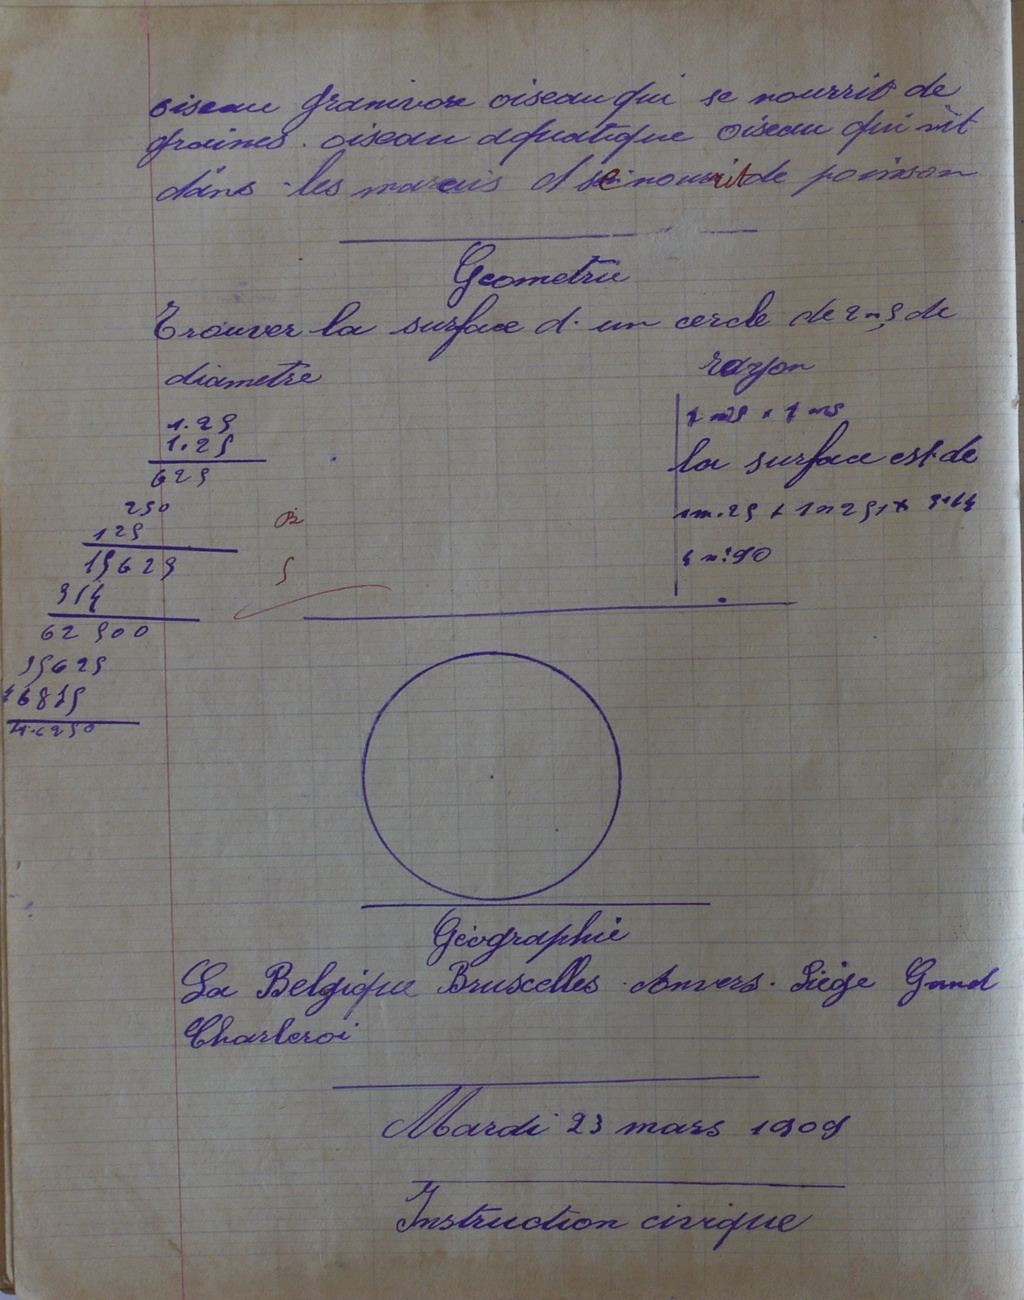 oiseau granivore oiseau qui se nourrit de
graines. oiseau aquatique oiseau qui vit
dans les marais et se nourrit de poisson
Geometrie
Trouver la surface d'un cercle de 2m,5 de
diametre
rayon
1.25
1.25
625
250
125
15625
314
62500
15625
46875
la surface est de
1m.25 x 1m25 x 3.14
4m²90
B
5
Géographie
La Belgique Bruxelles Anvers. Liège Gand
Charleroi
Mardi 23 mars 1909
Instruction civique